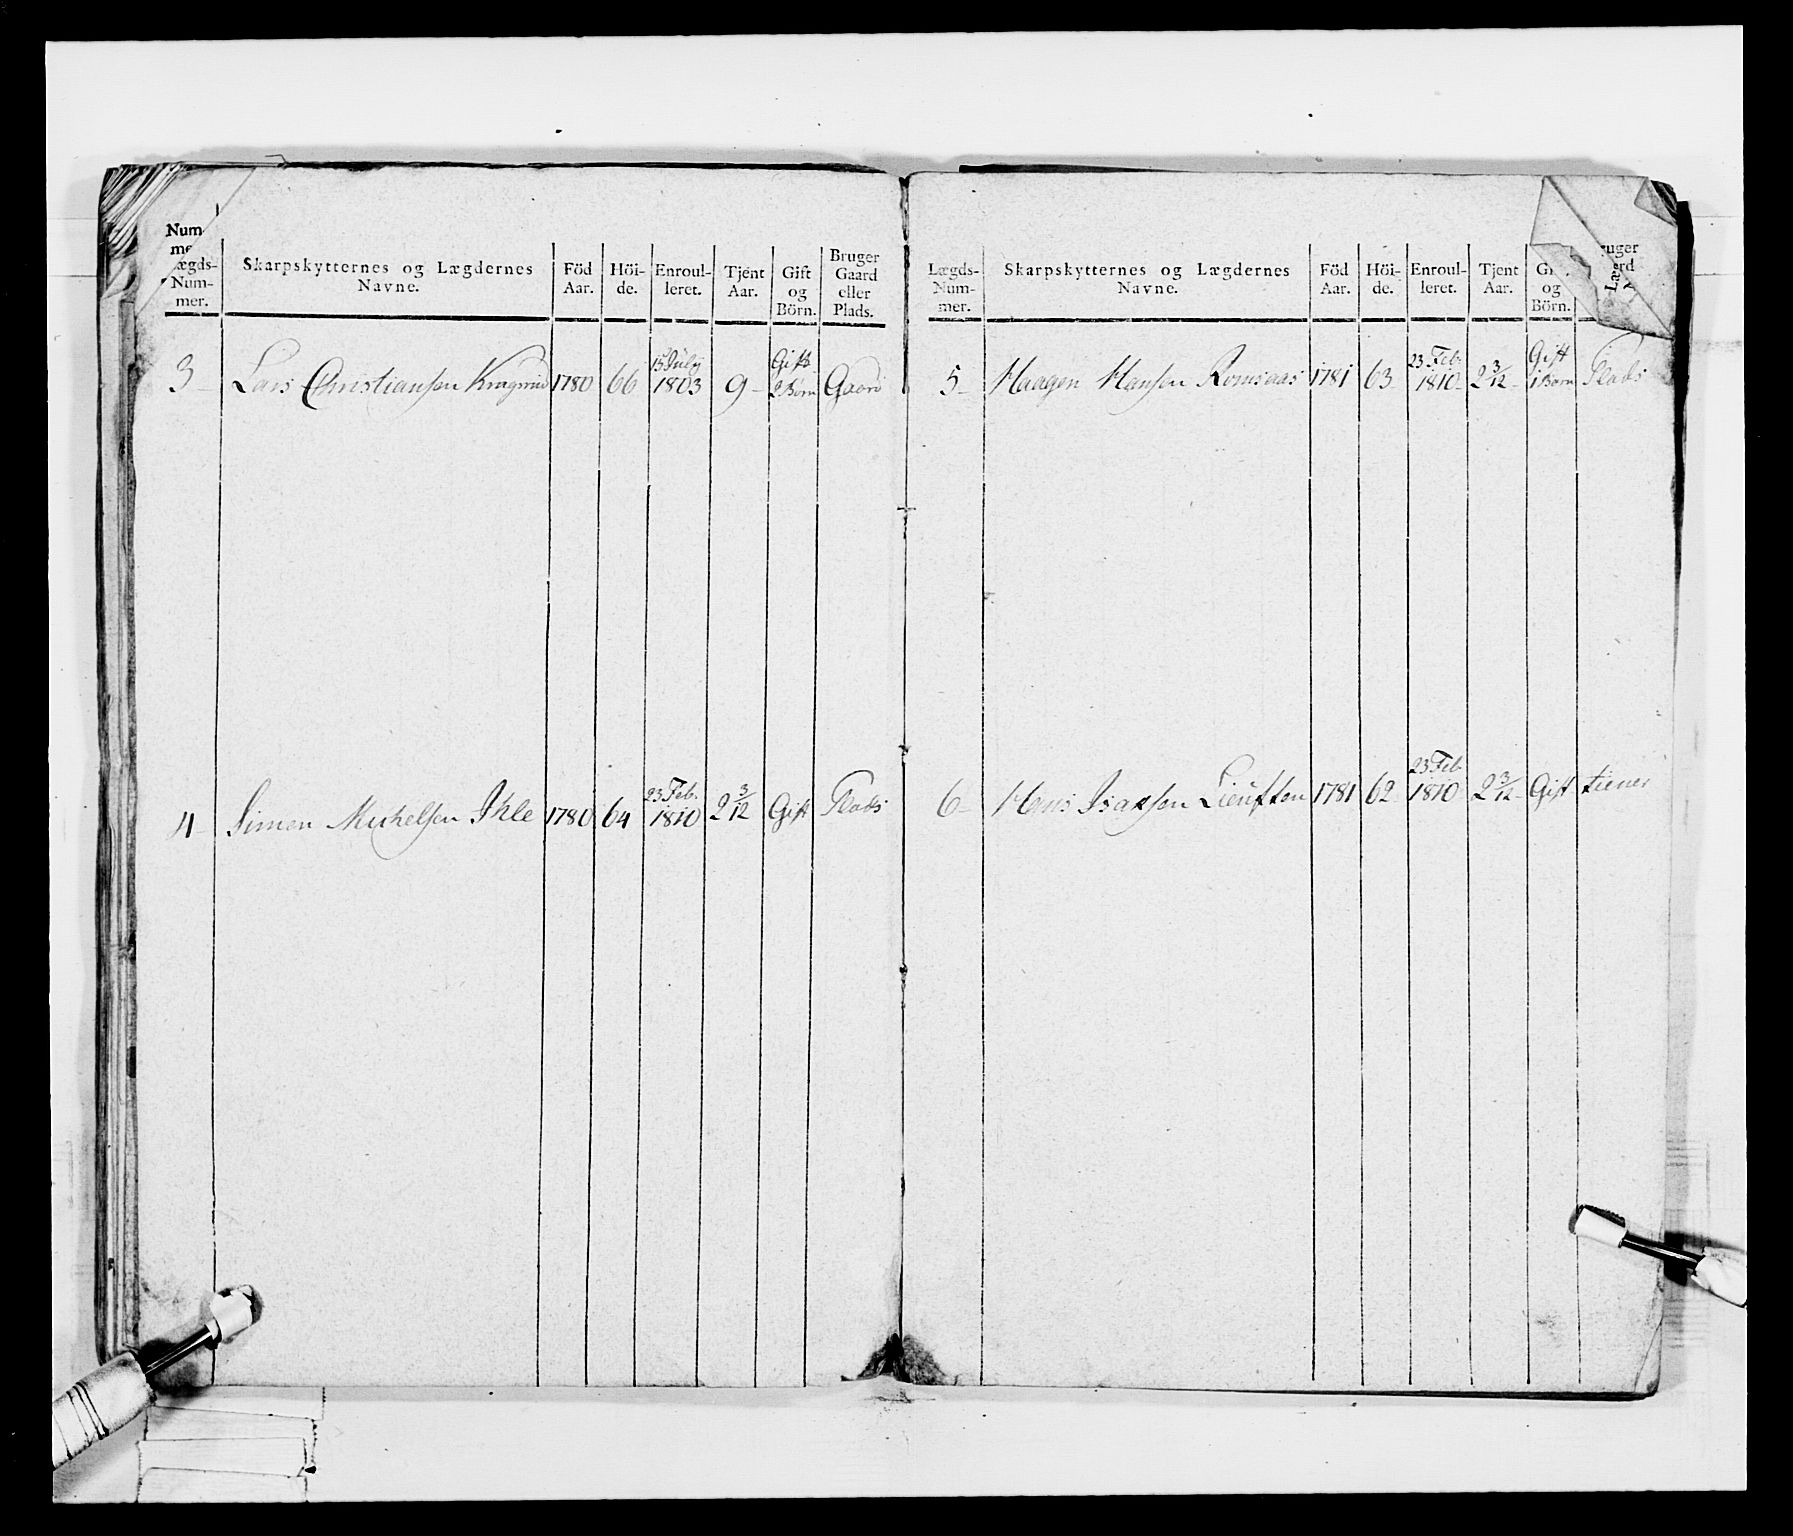 Num-
me
Lægds-
Num-
mer.
Skarpskytternes og Lægdernes
Navne.
Föd
Aar.
Höi-
de.
Enroul-
leret.
Tjent
Aar.
Gift
og
Börn.
Bruger
Gaard
eller
Plads.
3 - Lars Christiansen 1780 66 15 July 1803 9 - Gift 2 Börn Gaard
4 - Simen Michelsen Ihle 1780 64 23 Feb. 1810 2 3/12 Gift Plads
Lægds-
Num-
mer.
Skarpskytternes og Lægdernes
Navne.
Föd
Aar.
Höi-
de.
Enroul-
leret.
Tjent
Aar.
og
Börn.
ruger
5 - Haagen Hansen Romsaas 1781 63 23 Feb. 1810 - 2 3/12 - Gift 1 Barn Plads
6 - Hans Isaksen 1781 62 23 Feb. 1810 2 3/12 - Gift tiener